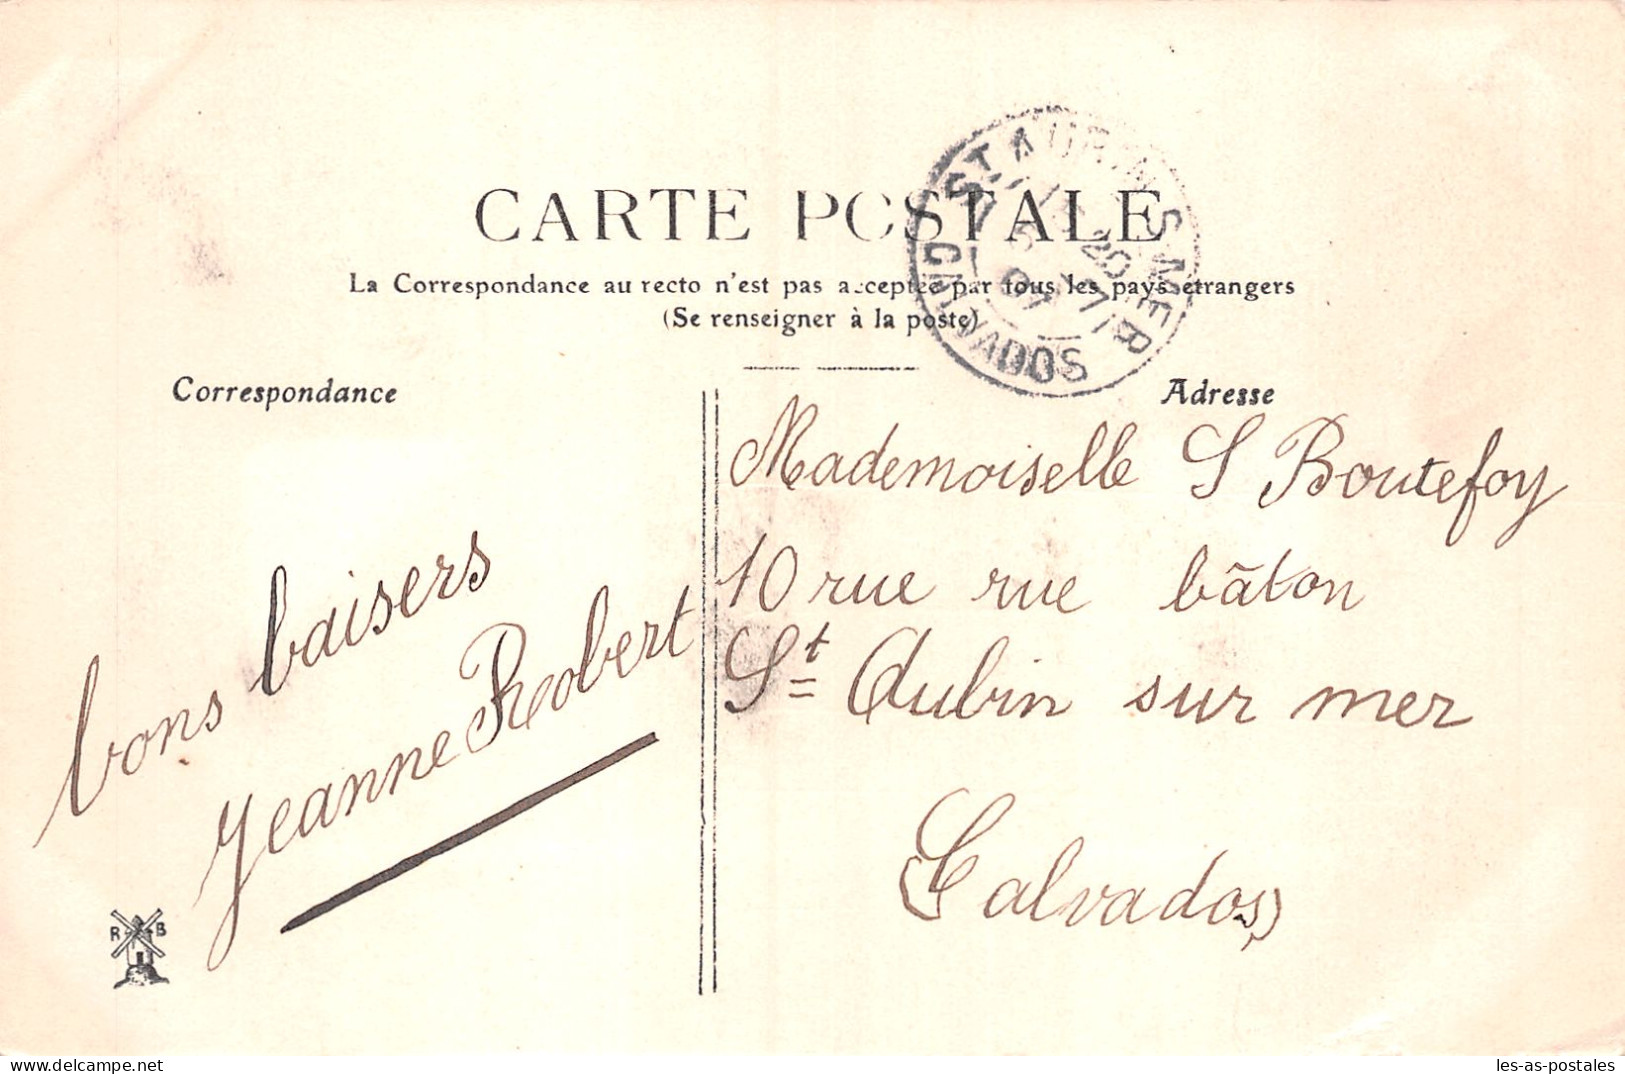 CARTE POSTALE
La Correspondance au recto n'est pas acceptée par tous les pays étrangers
(Se renseigner à la poste)
ST AUBIN S-MER
CALVADOS
Correspondance
bons baisers
Jeanne Robert
R B
Adresse
Mademoiselle S Boutefoy
10 rue rue bâton
St Aubin sur mer
(Calvados)
les-as-postales